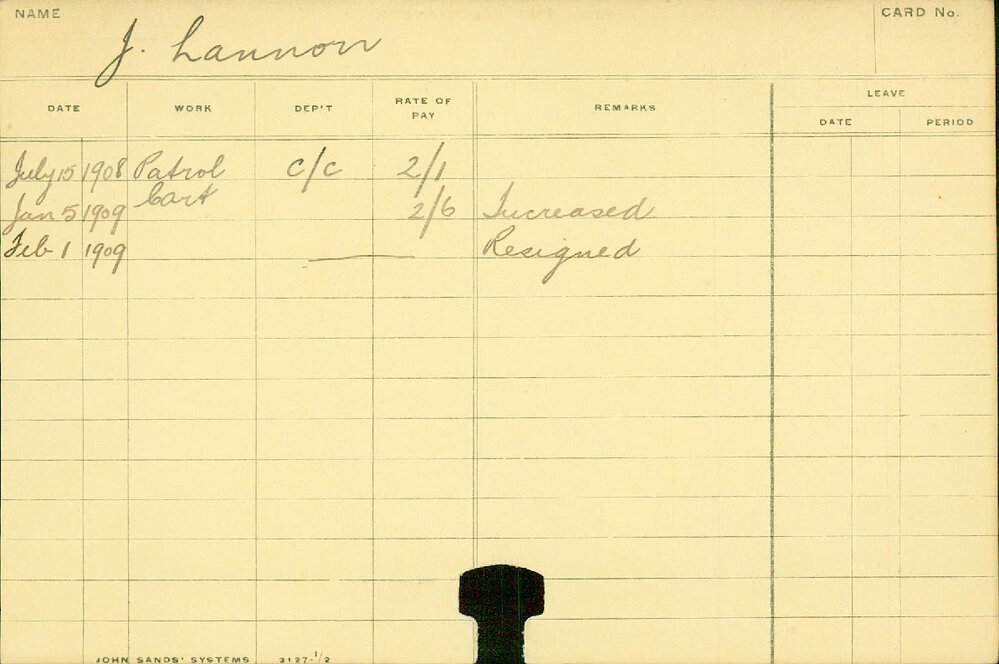 NAME J. Lannon CARD No.
DATE WORK DEP'T RATE OF PAY REMARKS LEAVE
DATE PERIOD
July 15 1908 Patrol C/C 2/1
Cart
Jan 5 1909 2/6 Increased
Feb 1 1909 Resigned
JOHN SANDS' SYSTEMS 3127-1/2